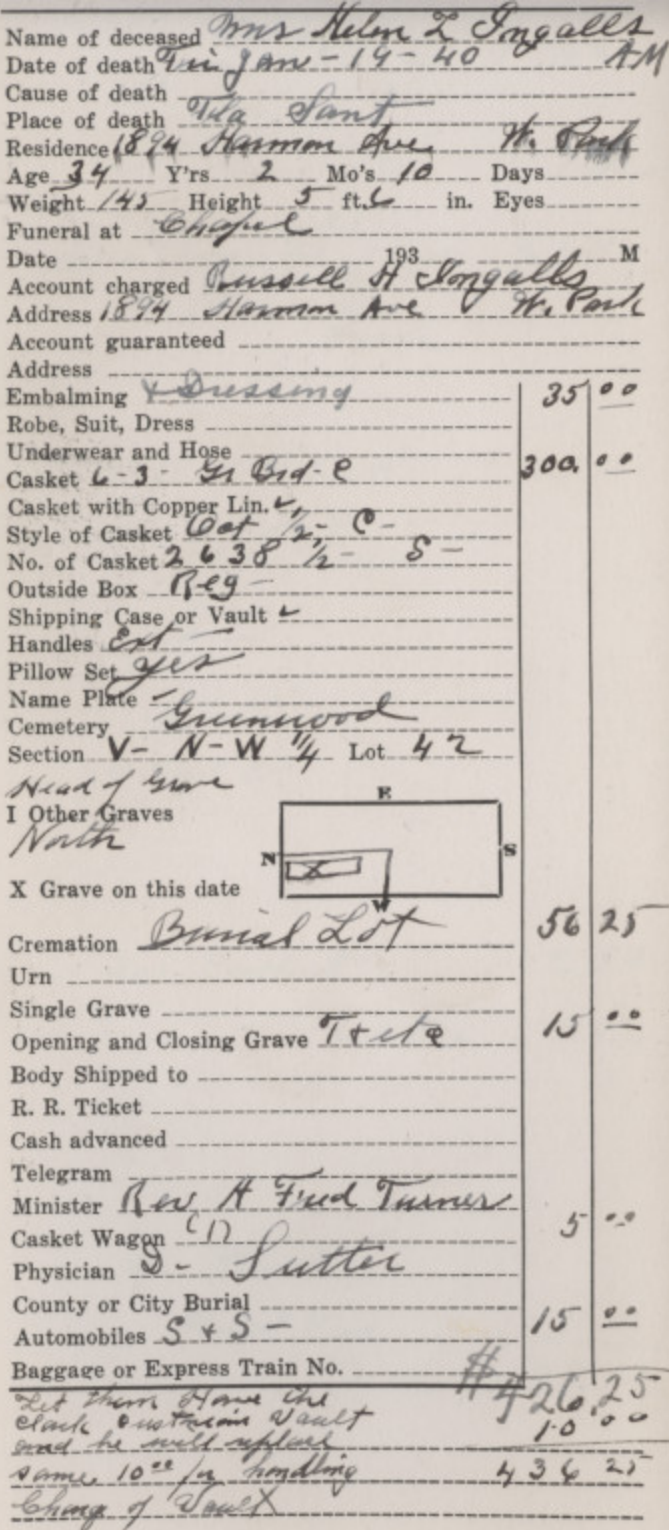 Name of deceased Mrs Helen L Ingalls
Date of death Fri Jan - 19 - 40 AM
Cause of death
Place of death Fla Sant
Residence 1894 Harmon Ave W. Park
Age 34 Y'rs 2 Mo's 10 Days
Weight 145 Height 5 ft. 6 in. Eyes
Funeral at Chapel
Date 193 M
Account charged Russell H Ingalls
Address 1894 Harmon Ave W. Park
Account guaranteed
Address
Embalming & Dressing 35 00
Robe, Suit, Dress
Underwear and Hose
Casket 6-3- Gr Brd-C 300. 00
Casket with Copper Lin.
Style of Casket Oct 1/2, C -
No. of Casket 2638 1/2 - S -
Outside Box Reg -
Shipping Case or Vault
Handles Ext -
Pillow Set yes
Name Plate
Cemetery Greenwood
Section V - N - W 1/4 Lot 42
Head of Grave
I Other Graves
North
E
N S
X
W
X Grave on this date
Cremation Burial Lot 56 25
Urn
Single Grave
Opening and Closing Grave T & 15 00
Body Shipped to
R. R. Ticket
Cash advanced
Telegram
Minister Rev. H Fred Turner
Casket Wagon (1) 5 00
Physician D - Sutter
County or City Burial
Automobiles S & S - 15 00
Baggage or Express Train No.
#426.25
Let them Have the 10 00
Clark Vault
and he will replace
same 10 00 for handling 436 25
Charge of Vault